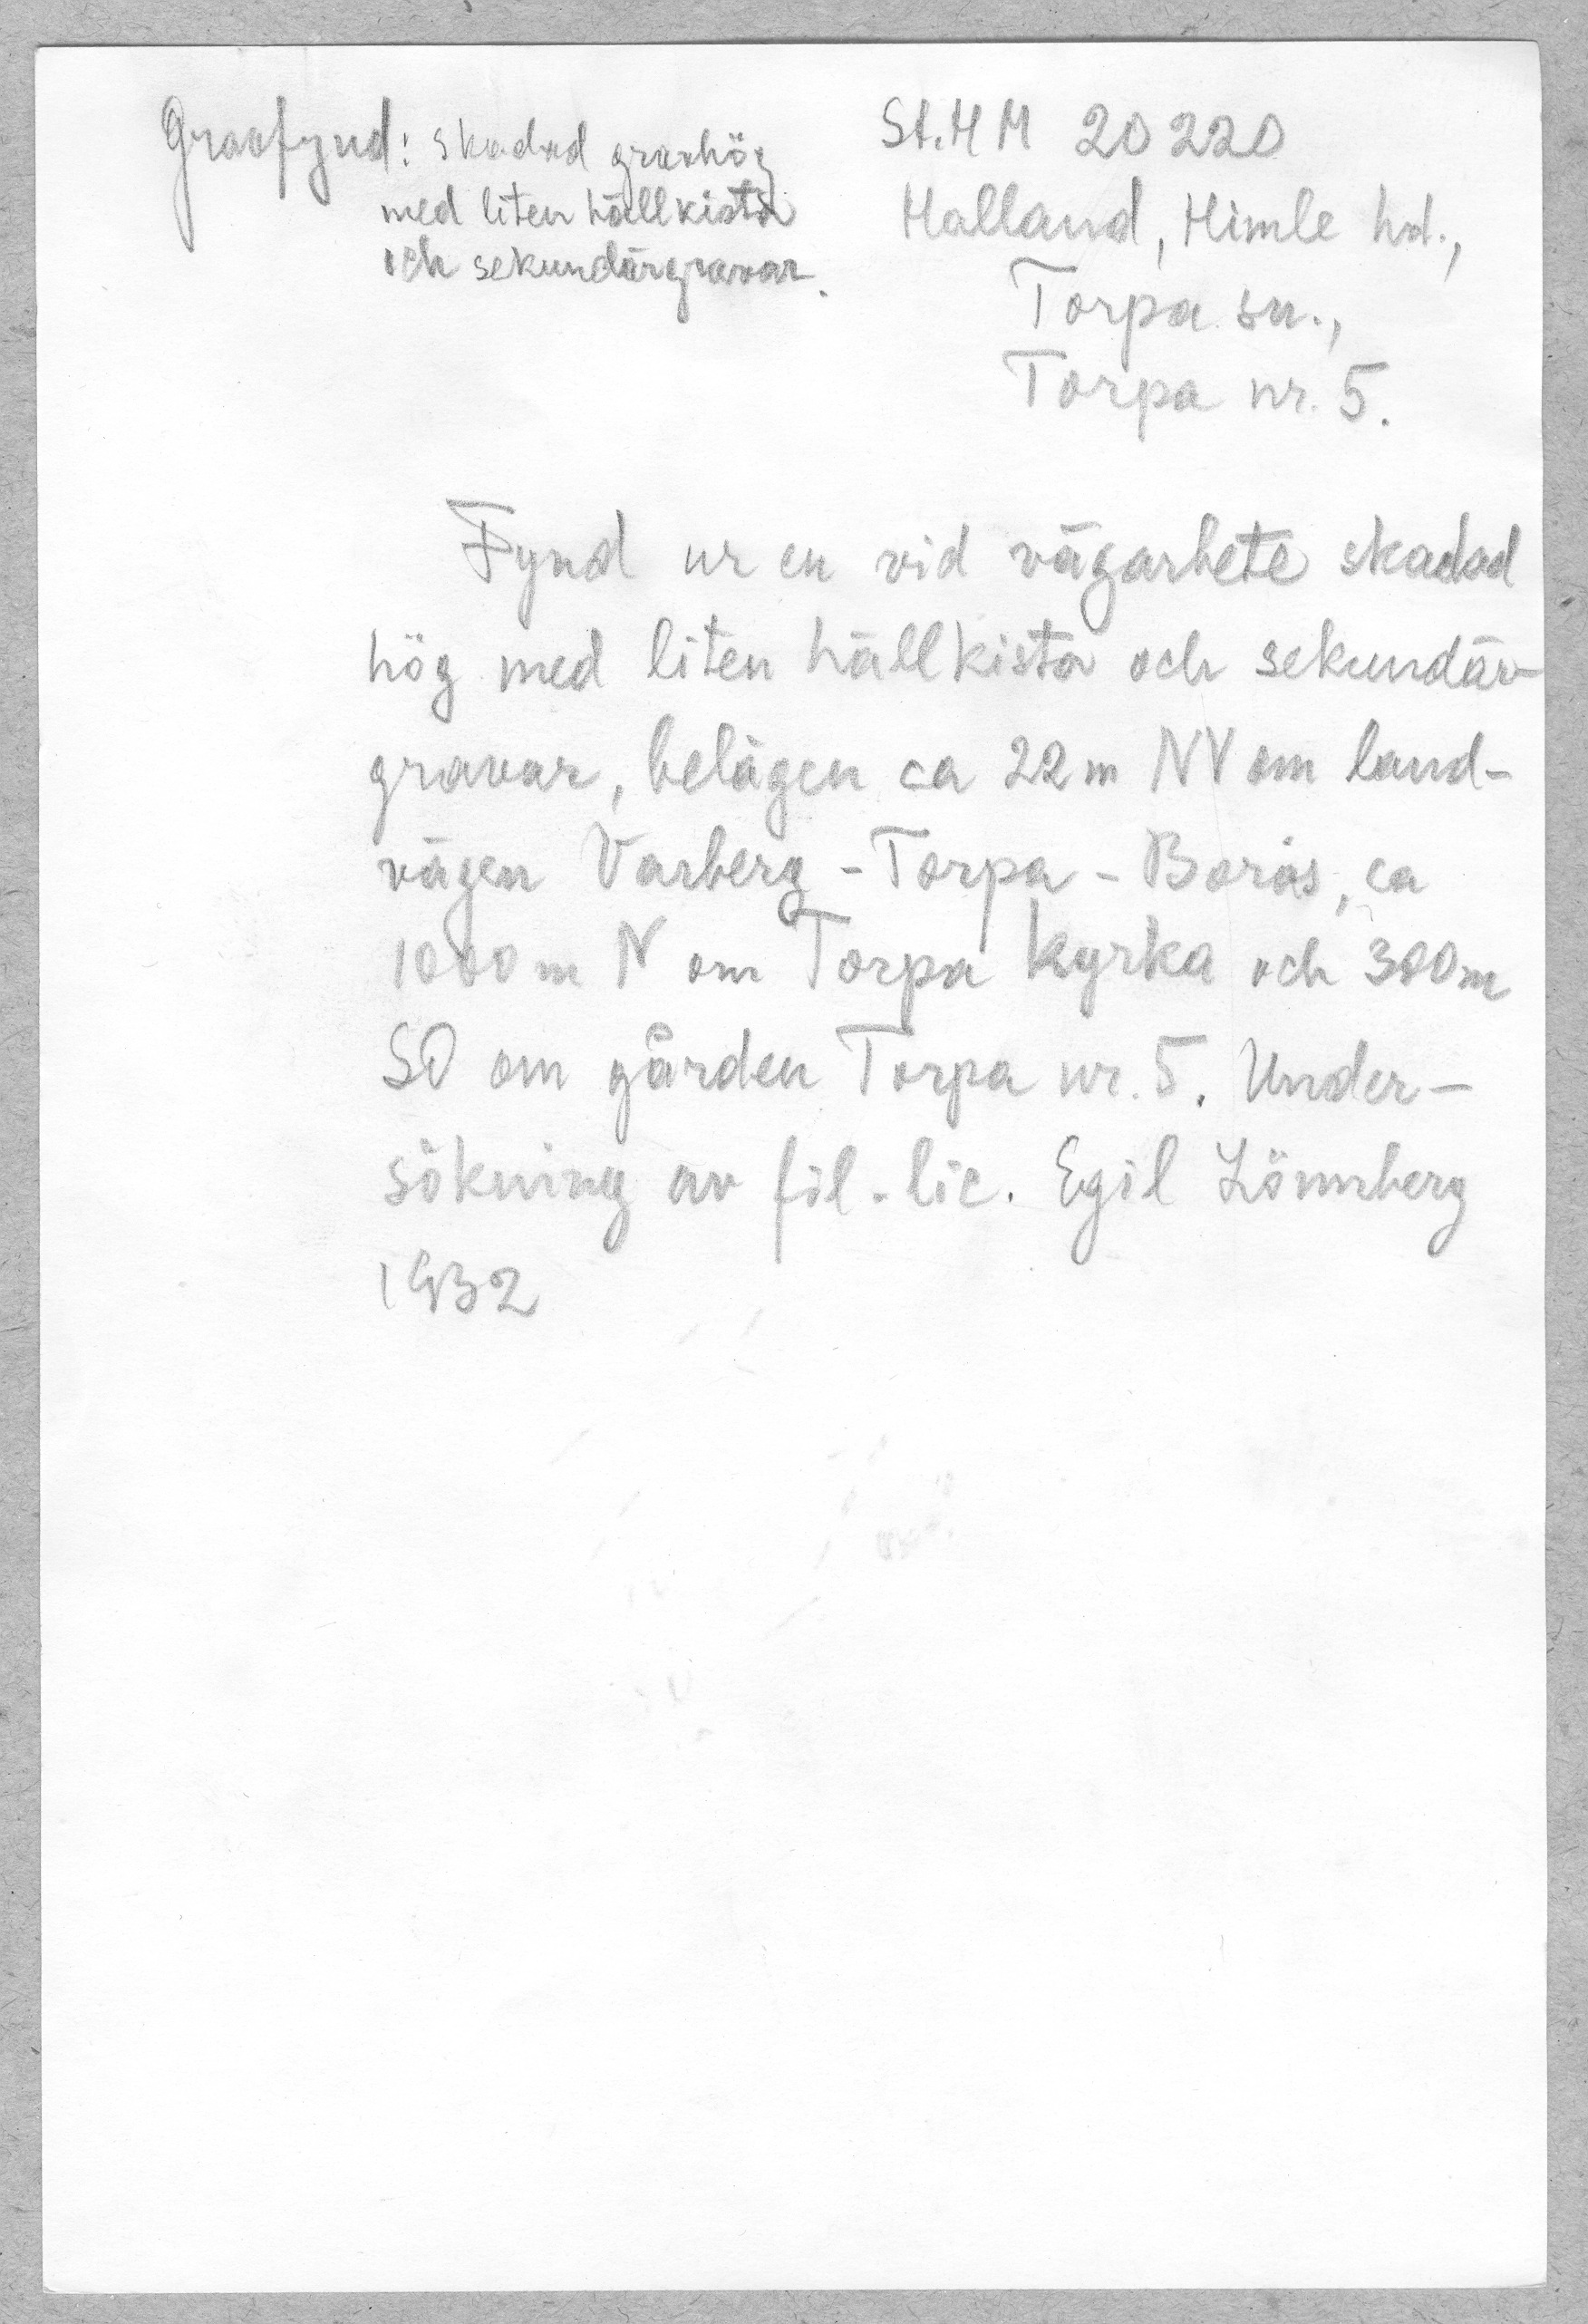 Gravfynd: skadad gravhög
med liten hällkista
och sekundärgravar.
St.H M 20 220
Halland, Himle hd.,
Torpa sn.,
Torpa nr. 5.
Fynd ur en vid vägarbete skadad
hög med liten hällkista och sekundär-
gravar, belägen ca 22 m NV om land-
vägen Varberg - Torpa - Borås, ca
1000 m N om Torpa kyrka och 300 m
SO om gården Torpa nr. 5. Under-
sökning av fil. lic. Egil Lönnberg
1932